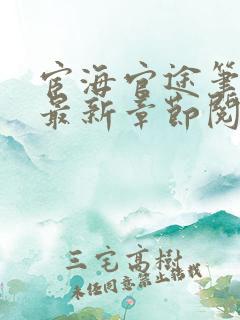 宦海官途筆
最新章節閱
三宅高樹
未經同意禁止轉載